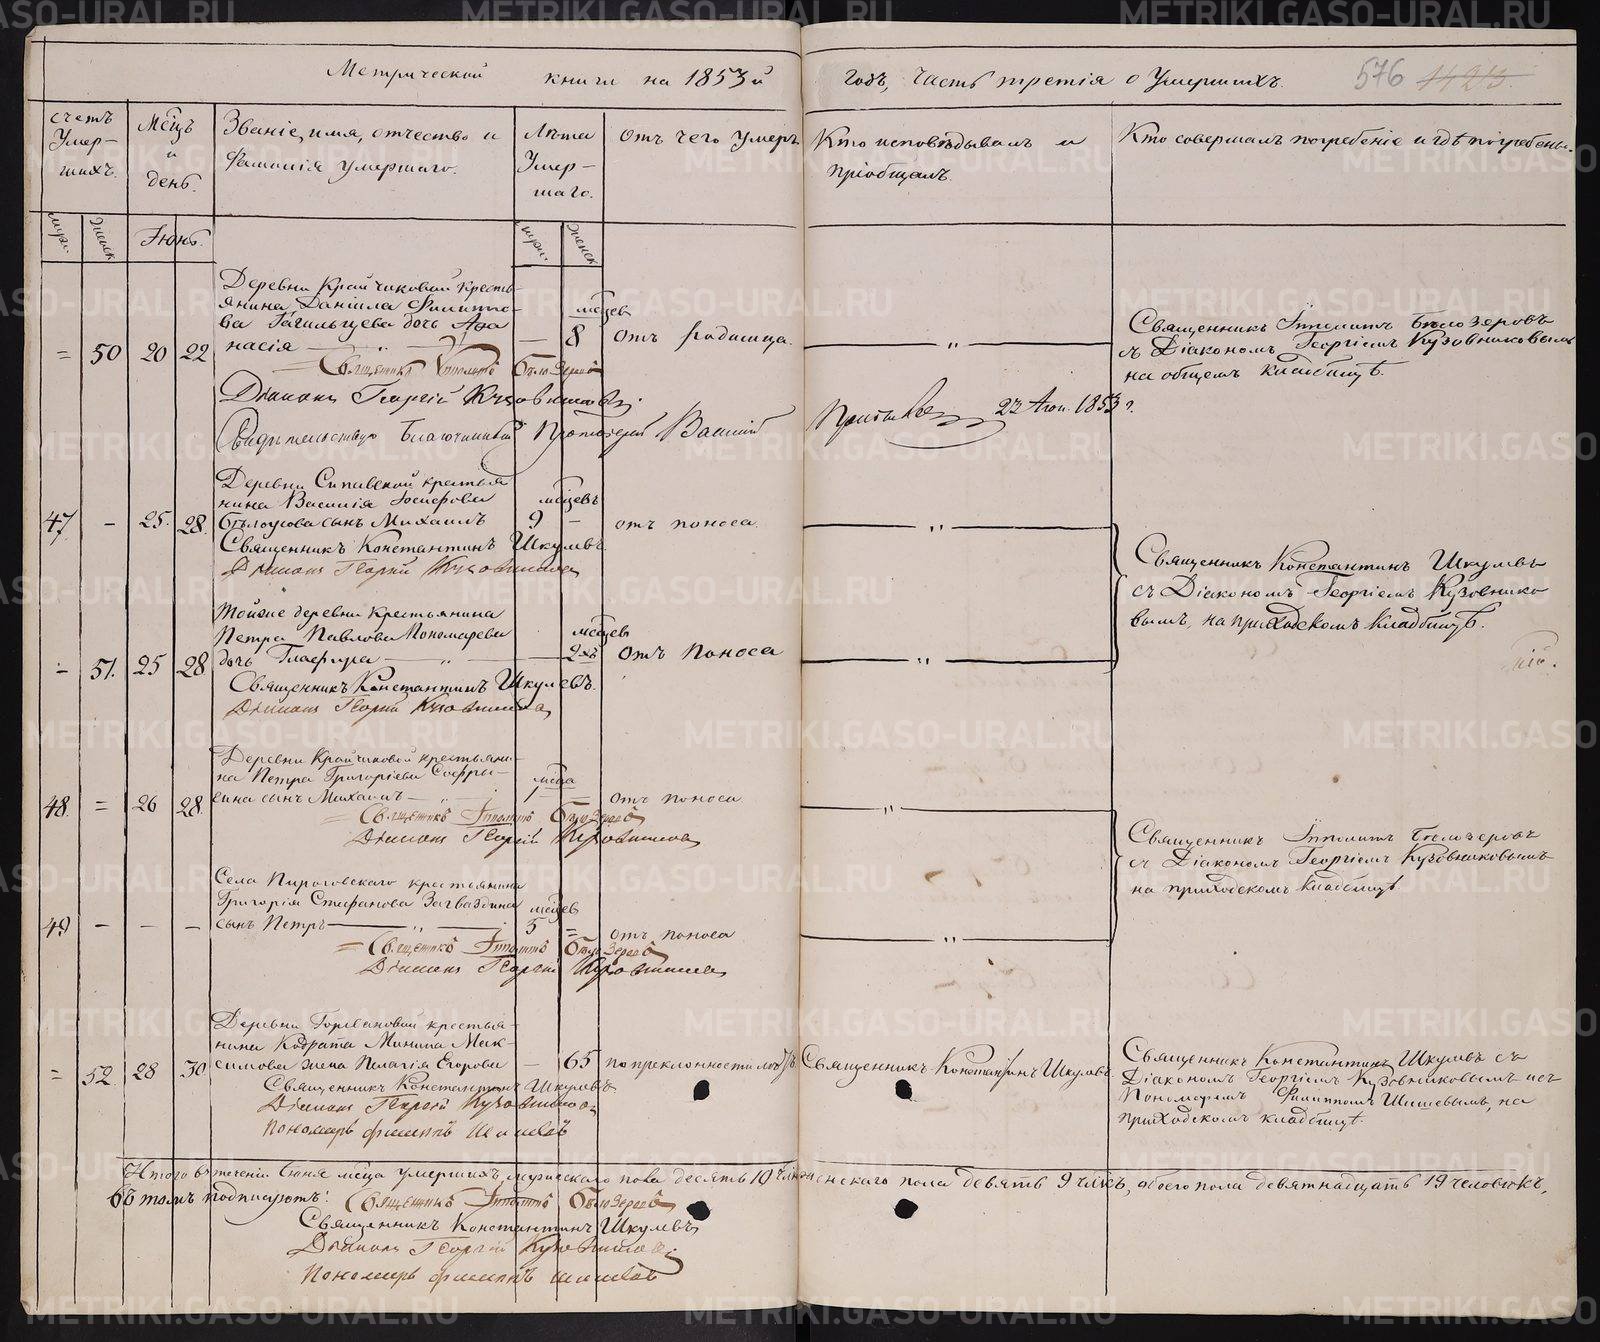 Метрической книги на 1853й годъ, часть третія о Умершихъ.
576
1423
счетъ Умер-шихъ.
Мѣцъ и день.
Званіе, имя, отчество и
Фамилія умершаго.
Лѣта Умер-шаго.
Отъ чего умеръ
Кто исповѣдывалъ и
пріобщалъ.
Кто совершалъ погребеніе и гдѣ погребены.
муж.
женск
Іюнь.
муж.
женск
Деревни Крайчиковой кресть-
янина Даніила Филиппо-
ва дочь Афа
насія
= 50 20 22
мѣцев
— 8
отъ родимца.
— „ —
Священникъ Іпполитъ Бѣлозеровъ
съ Діакономъ Георгіемъ Кузовниковымъ
на общемъ кладбищѣ.
Священникъ Іпполитъ Бѣлозеровъ
Діаконъ Георгій Кузовниковъ
Свидѣтельствую Благочинный Протоіерей Василій
23 1853 г.
Деревни Сипавской крестья
нина Василія Іосифова
47 — 25. 28. Бѣлоусова сынъ Михаилъ
мѣцевъ
9 —
отъ поноса.
— „ —
Священникъ Константинъ Шкулевъ.
Діаконъ Георгій Кузовниковъ
Священникъ Константинъ Шкулевъ
съ Діакономъ Георгіемъ Кузовнико
вымъ, на приходскомъ кладбищѣ.
Тойже деревни крестьянина
Петра Павлова Пономарева
= 51. 25 28 дочь Глафира — „ —
мѣцевъ
2хъ
отъ поноса
— „ —
Священникъ Константинъ Шкулевъ.
Діаконъ Георгій Кузовниковъ
Деревни Крайчиковой крестьяни-
на Петра Григоріева Софры-
48. = 26 28. гина сынъ Михаилъ —
мѣца
1 —
отъ поноса
— „ —
= Священникъ Іпполитъ Бѣлозеровъ
Діаконъ Георгій Кузовниковъ
Священникъ Іпполитъ Бѣлозеровъ
съ Діакономъ Георгіемъ Кузовниковымъ
на приходскомъ кладбищѣ
Села Пироговскаго крестьянина
Григорія Стефанова Загваздина
49 — — — сынъ Петръ — „ —
мѣцев
5 =
отъ поноса
— „ —
= Священникъ Іпполитъ Бѣлозеровъ
Діаконъ Георгій Кузовниковъ
Деревни Горбановой крестья-
нина Кодрата Минина Мак-
= 52 28 30 симова жена Пелагія Егорова — 65 по преклонности лѣтъ
Священникъ Константинъ Шкулевъ
Священникъ Константинъ Шкулевъ
Діаконъ Георгій Кузовниковъ
Пономарь Филиппъ Шишевъ
Священникъ Константинъ Шкулевъ съ
Діакономъ Георгіемъ Кузовниковымъ и съ
Пономаремъ Филиппомъ Шишевымъ, на
приходскомъ кладбищѣ.
Итого въ теченіи Іюня мѣца умершихъ, мужескаго пола десять 10 женскаго пола девять 9 члкъ, обоего пола девятнадцать 19 человѣкъ,
въ томъ подписуютъ: Священникъ Іпполитъ Бѣлозеровъ
Священникъ Константинъ Шкулевъ
Діаконъ Георгій Кузовниковъ
Пономарь Филиппъ Шишевъ
METRIKI.GASO-URAL.RU